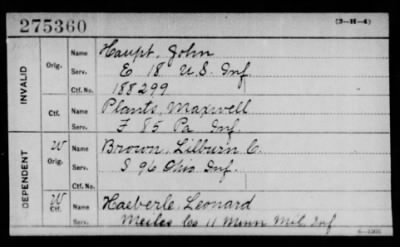 275360 (3-H-4)
INVALID
Orig. Name Haupt, John
Serv. E 18 U.S. Inf.
Ctf. No. 188299
Ctf. Name Plants, Maxwell
Serv. F 85 Pa Inf.
DEPENDENT
W Orig. Name Brown, Lilburn C.
Serv. S 96 Ohio Inf.
Ctf. No.
W Ctf. Name Haeberle, Leonard
Serv. Co 11 Minn Mil Inf